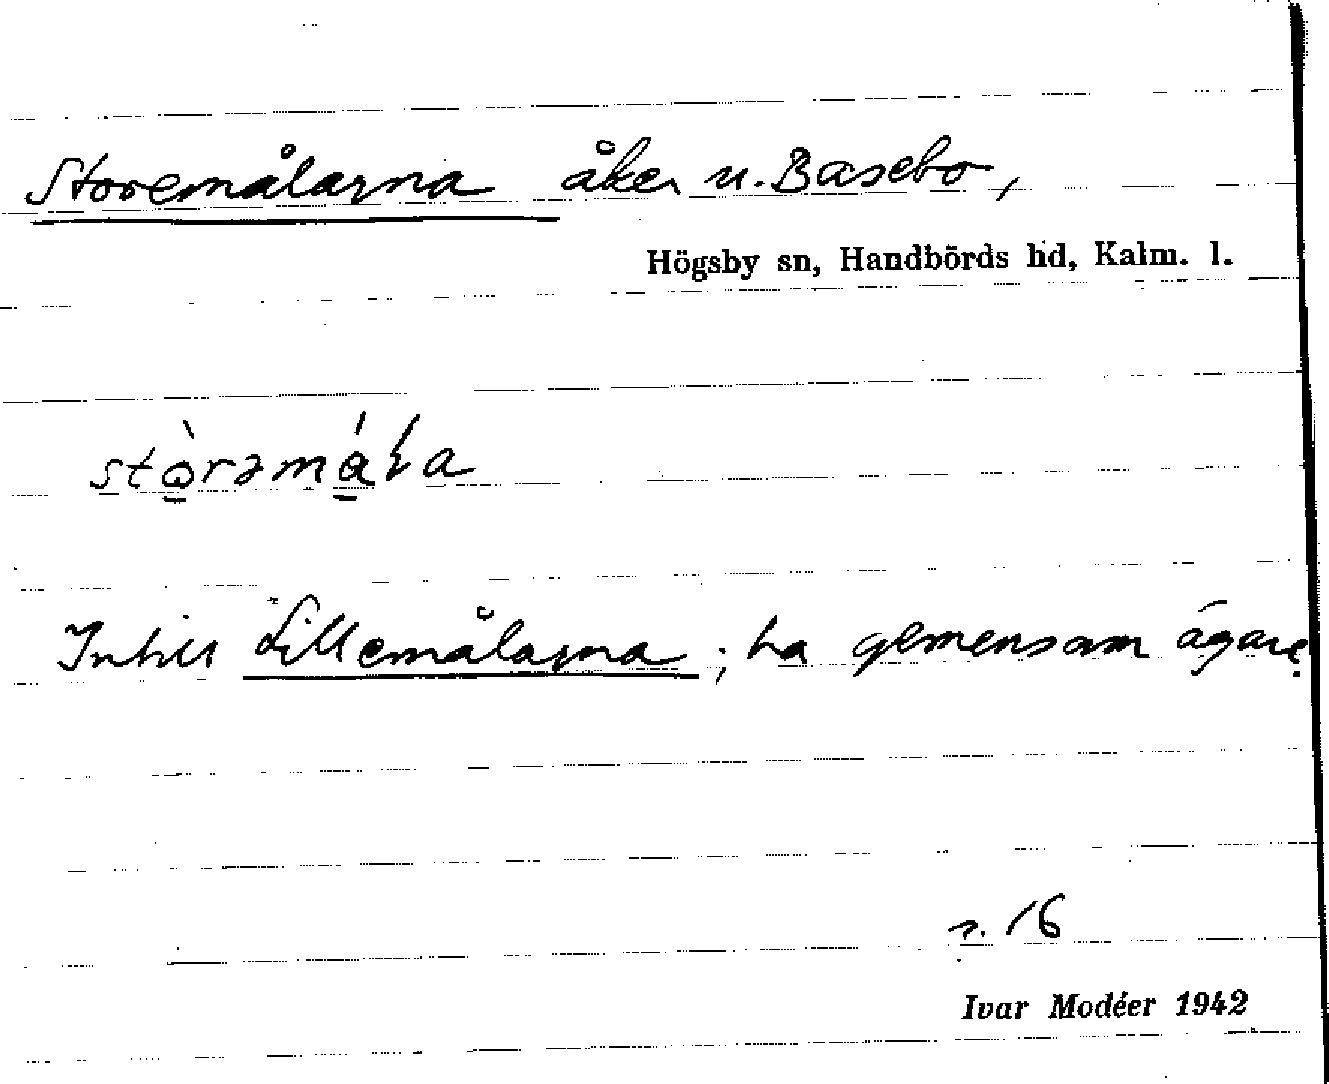 Storemålarna åker u. Basebo,
Högsby sn, Handbörds hd, Kalm. l.
stòrəmáɫa
Intill Lillemålarna; ha gemensam ägare.
s. 16
Ivar Modéer 1942